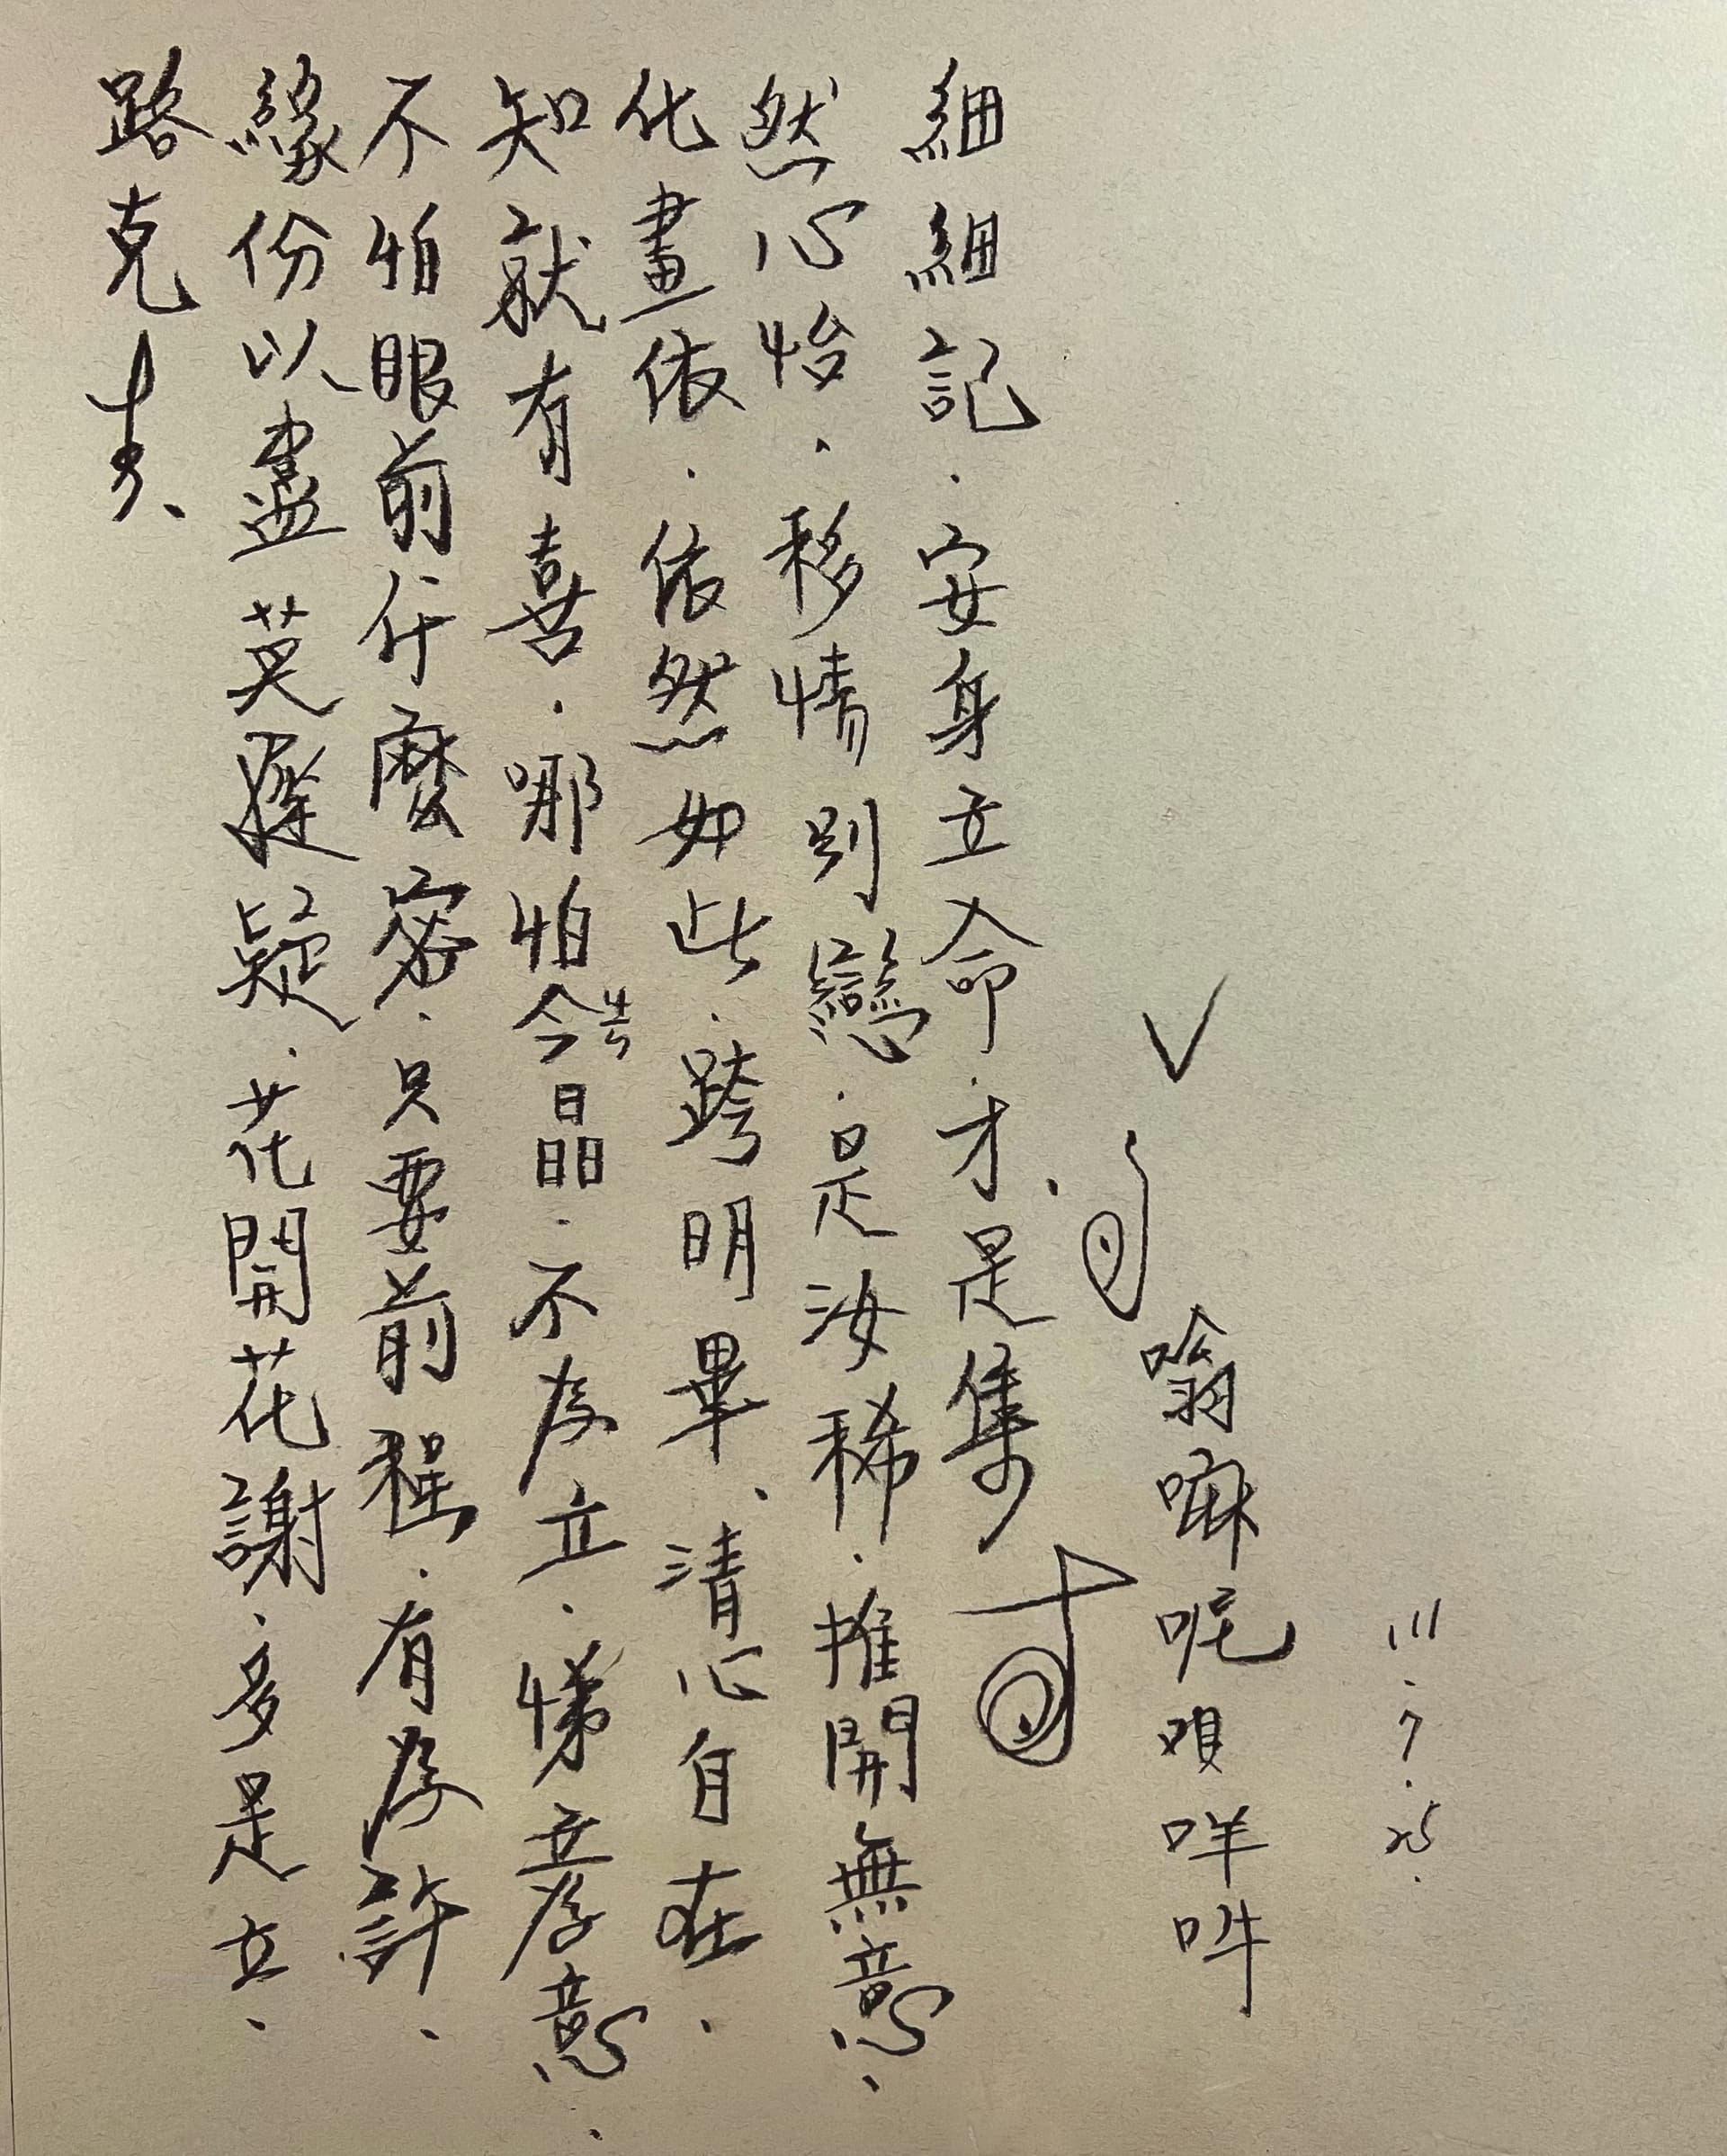 111.7.25.
嗡嘛呢唄咩吽
細細記.安身立命.才是集
然心怡.移情別戀.是汝稀.推開無意、
化畫依.依然如此.跨明畢、清心自在.
知就有喜.哪怕今晶.不為立.悌立孝意.
不怕眼前什麼密.只要前程.有為許、
緣份以盡莫遲疑.花開花謝.多是立、
路克